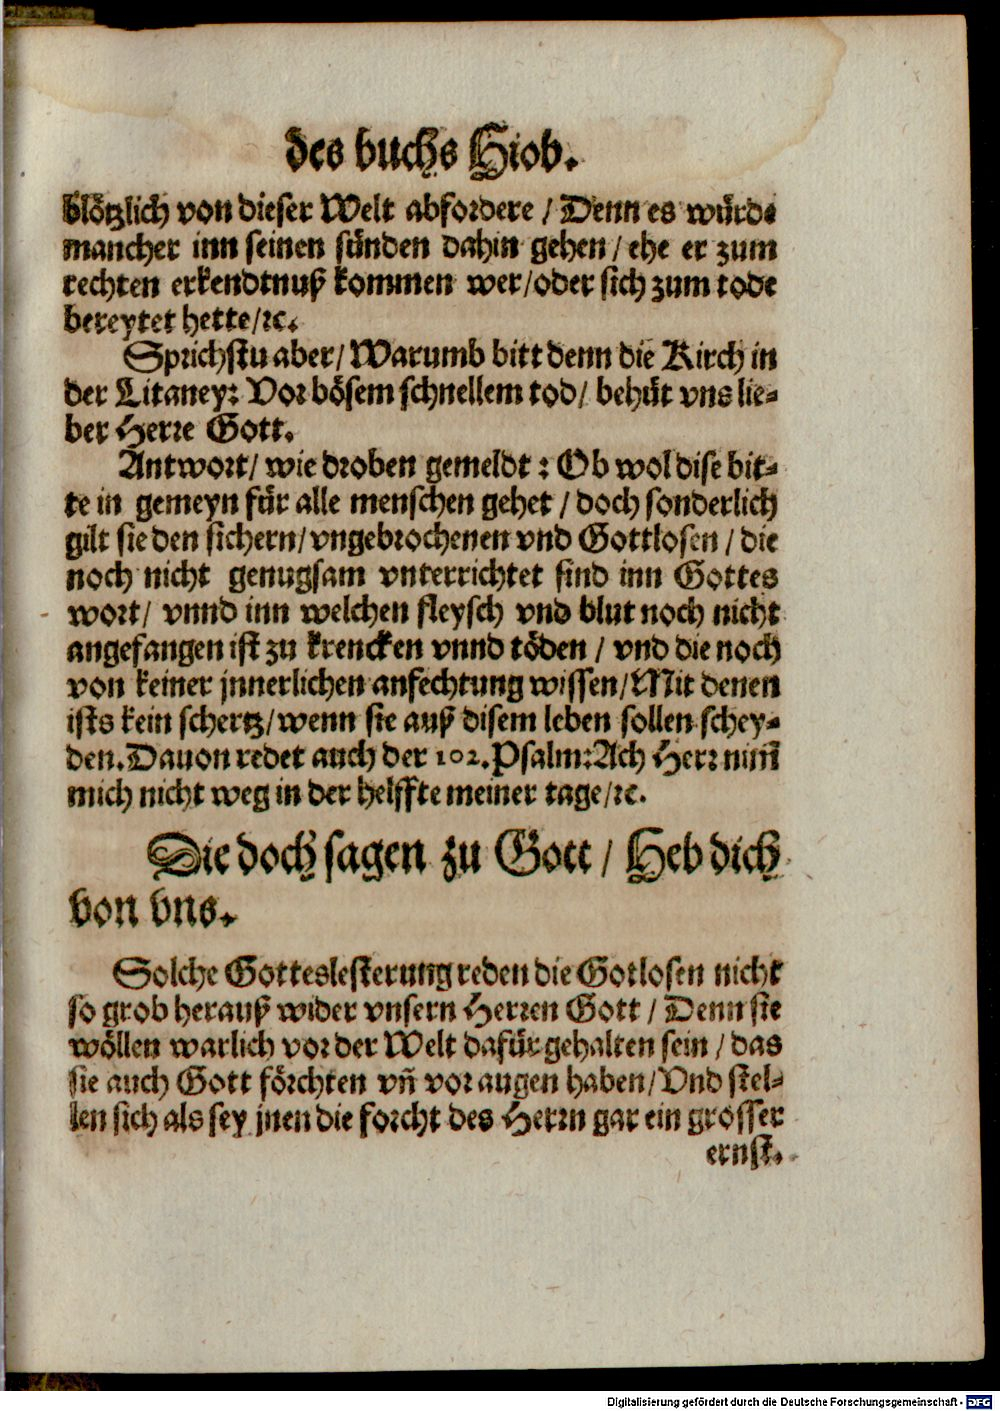 des buchs Hiob.
blötzlich von dieser Welt abfordere / Denn es würde
mancher inn seinen sünden dahin gehen / ehe er zum
rechten erkendtnuß kommen wer / oder sich zum tode
bereytet hette / ꝛc.
Sprichstu aber / Warumb bitt denn die Kirch in
der Litaney: Vor bösem schnellem tod / behüt vns lie-
ber Herre Gott.
Antwort / wie droben gemeldt : Ob wol dise bit-
te in gemeyn für alle menschen gehet / doch sonderlich
gilt sie den sichern / vngebrochenen vnd Gottlosen / die
noch nicht genugsam vnterrichtet sind inn Gottes
wort / vnnd inn welchen fleysch vnd blut noch nicht
angefangen ist zu krencken vnnd töden / vnd die noch
von keiner jnnerlichen anfechtung wissen / Mit denen
ists kein schertz / wenn sie auß disem leben sollen schey-
den. Dauon redet auch der 102. Psalm: Ach Herr nim̃
mich nicht weg in der helffte meiner tage / ꝛc.
Die doch sagen zu Gott / Heb dich
von vns.
Solche Gotteslesterung reden die Gotlosen nicht
so grob herauß wider vnsern Herren Gott / Denn sie
wöllen warlich vor der Welt dafür gehalten sein / das
sie auch Gott förchten vñ vor augen haben / Vnd stel-
len sich als sey jnen die forcht des Herrn gar ein grosser
ernst.
Digitalisierung gefördert durch die Deutsche Forschungsgemeinschaft - DFG